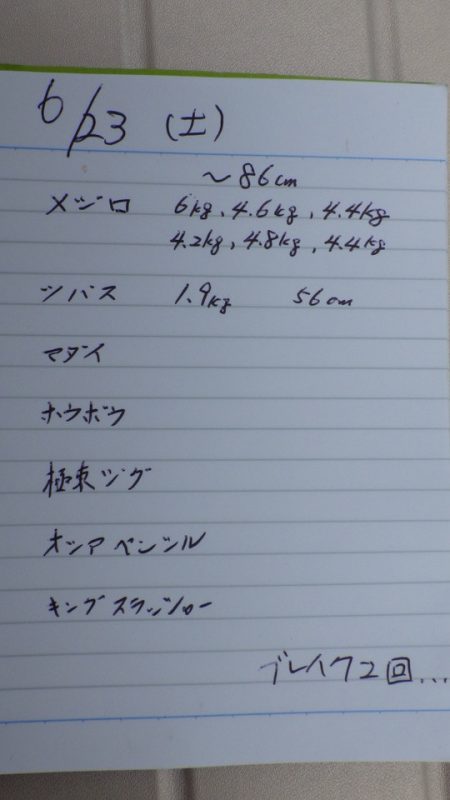 6/23 (土)
～86cm
メジロ 6kg, 4.6kg, 4.4kg
4.2kg, 4.8kg, 4.4kg
ツバス 1.9kg 56cm
マダイ
ホウボウ
極東ジグ
オシアペンシル
キングスラッシャー
ブレイク2回...